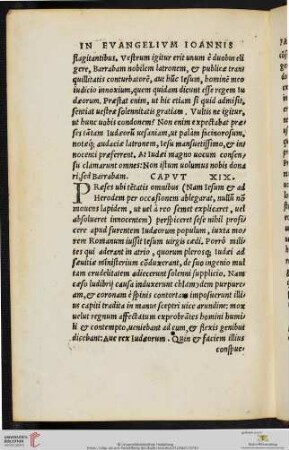 IN EVANGELIVM IOANNIS
flagitantibus. Vestrum igitur erit unum è duobus eli
gere, Barrabam nobilem latronem, & publicæ tranq
quillitatis conturbatorē, aut hūc Iesum, hominē meo
iudicio innoxium, quem quidam dicunt esse regem Iu
dæorum. Præstat enim, ut hic etiam si quid admisit,
sentiat uestræ solennitatis gratiam. Vultis ne igitur,
ut hunc uobis condonem? Non enim expectabat præ
ses tātam Iudæorū uesaniam, ut palàm facinorosum,
notæq; audaciæ latronem, Iesu mansuetissimo, & in
nocenti præferrent. At Iudæi magno uocum consen
su clamarunt omnes: Non istum uolumus nobis dona
ri, sed Barrabam. CAPVT XIX.
PRæses ubi tētatis omnibus (Nam Iesum & ad
Herodem per occasionem ablegarat, nullū nō
mouens lapidem, ut uel à reo semet explicaret, uel
absolueret innocentem) perspiceret sese nihil profi
cere apud furentem Iudæorum populum, iuxta mo
rem Romanum iussit Iesum uirgis cædi. Porrò mili
tes qui aderant in atrio, quorum plerosq; Iudæi ad
sæuitiæ ministerium cōduxerant, de suo ingenio mul
tam crudelitatem adiecerunt solenni supplicio. Nam
cæso ludibrij causa induxerunt chlamydem purpu=
ream, & coronam è spinis contortam imposuerunt illi
us capiti tradita in manu sceptri uice arundine: mox
uelut regnum affectatum exprobrātes homini humi
li & contempto, ueniebant ad eum, & flexis genibus
dicebant: Aue rex Iudæorum. Quin & faciem illius
conspue=